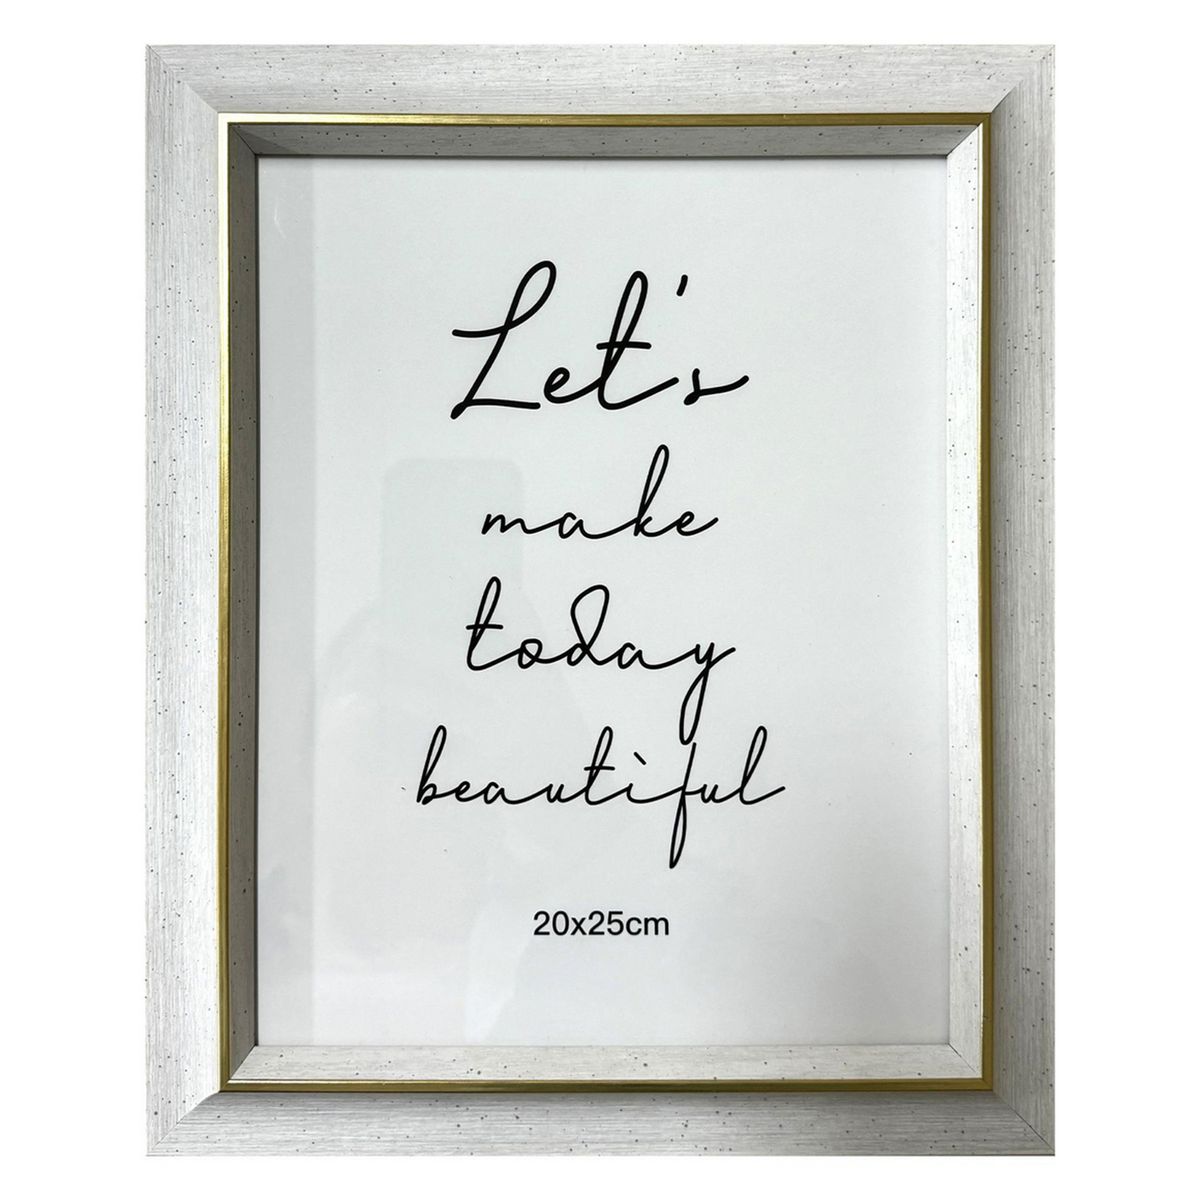 Let's
make
today
beautiful
20x25cm